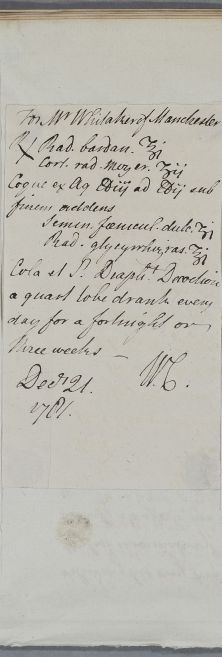 For Mr Whitaker of Manchester
℞ Rad. bardan. ℥j
Cort. rad. mezer. ʒij
Coque ex Aq ℔iij ad ℔ij sub
finem addens
Semin. fœnicul. dulc. ℥j
Rad. glycyrrhiz. ras. ℥j
Cola et S.
a quart to be drank every
day for a fortnight or
three weeks —
Decr. 21. W.
1781.